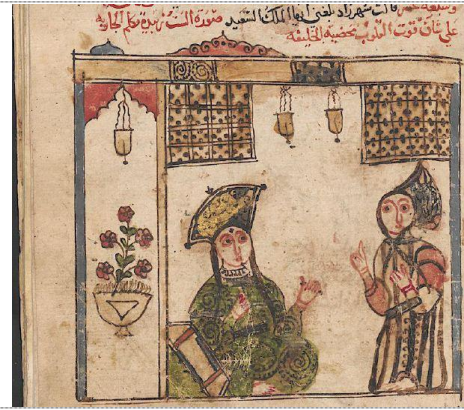 قالت شهرزاد بلغني ايها الملك السعيد صورة الست زبيدة تكلم الجارية
علي شان قوت القلوب محضية الخليفه